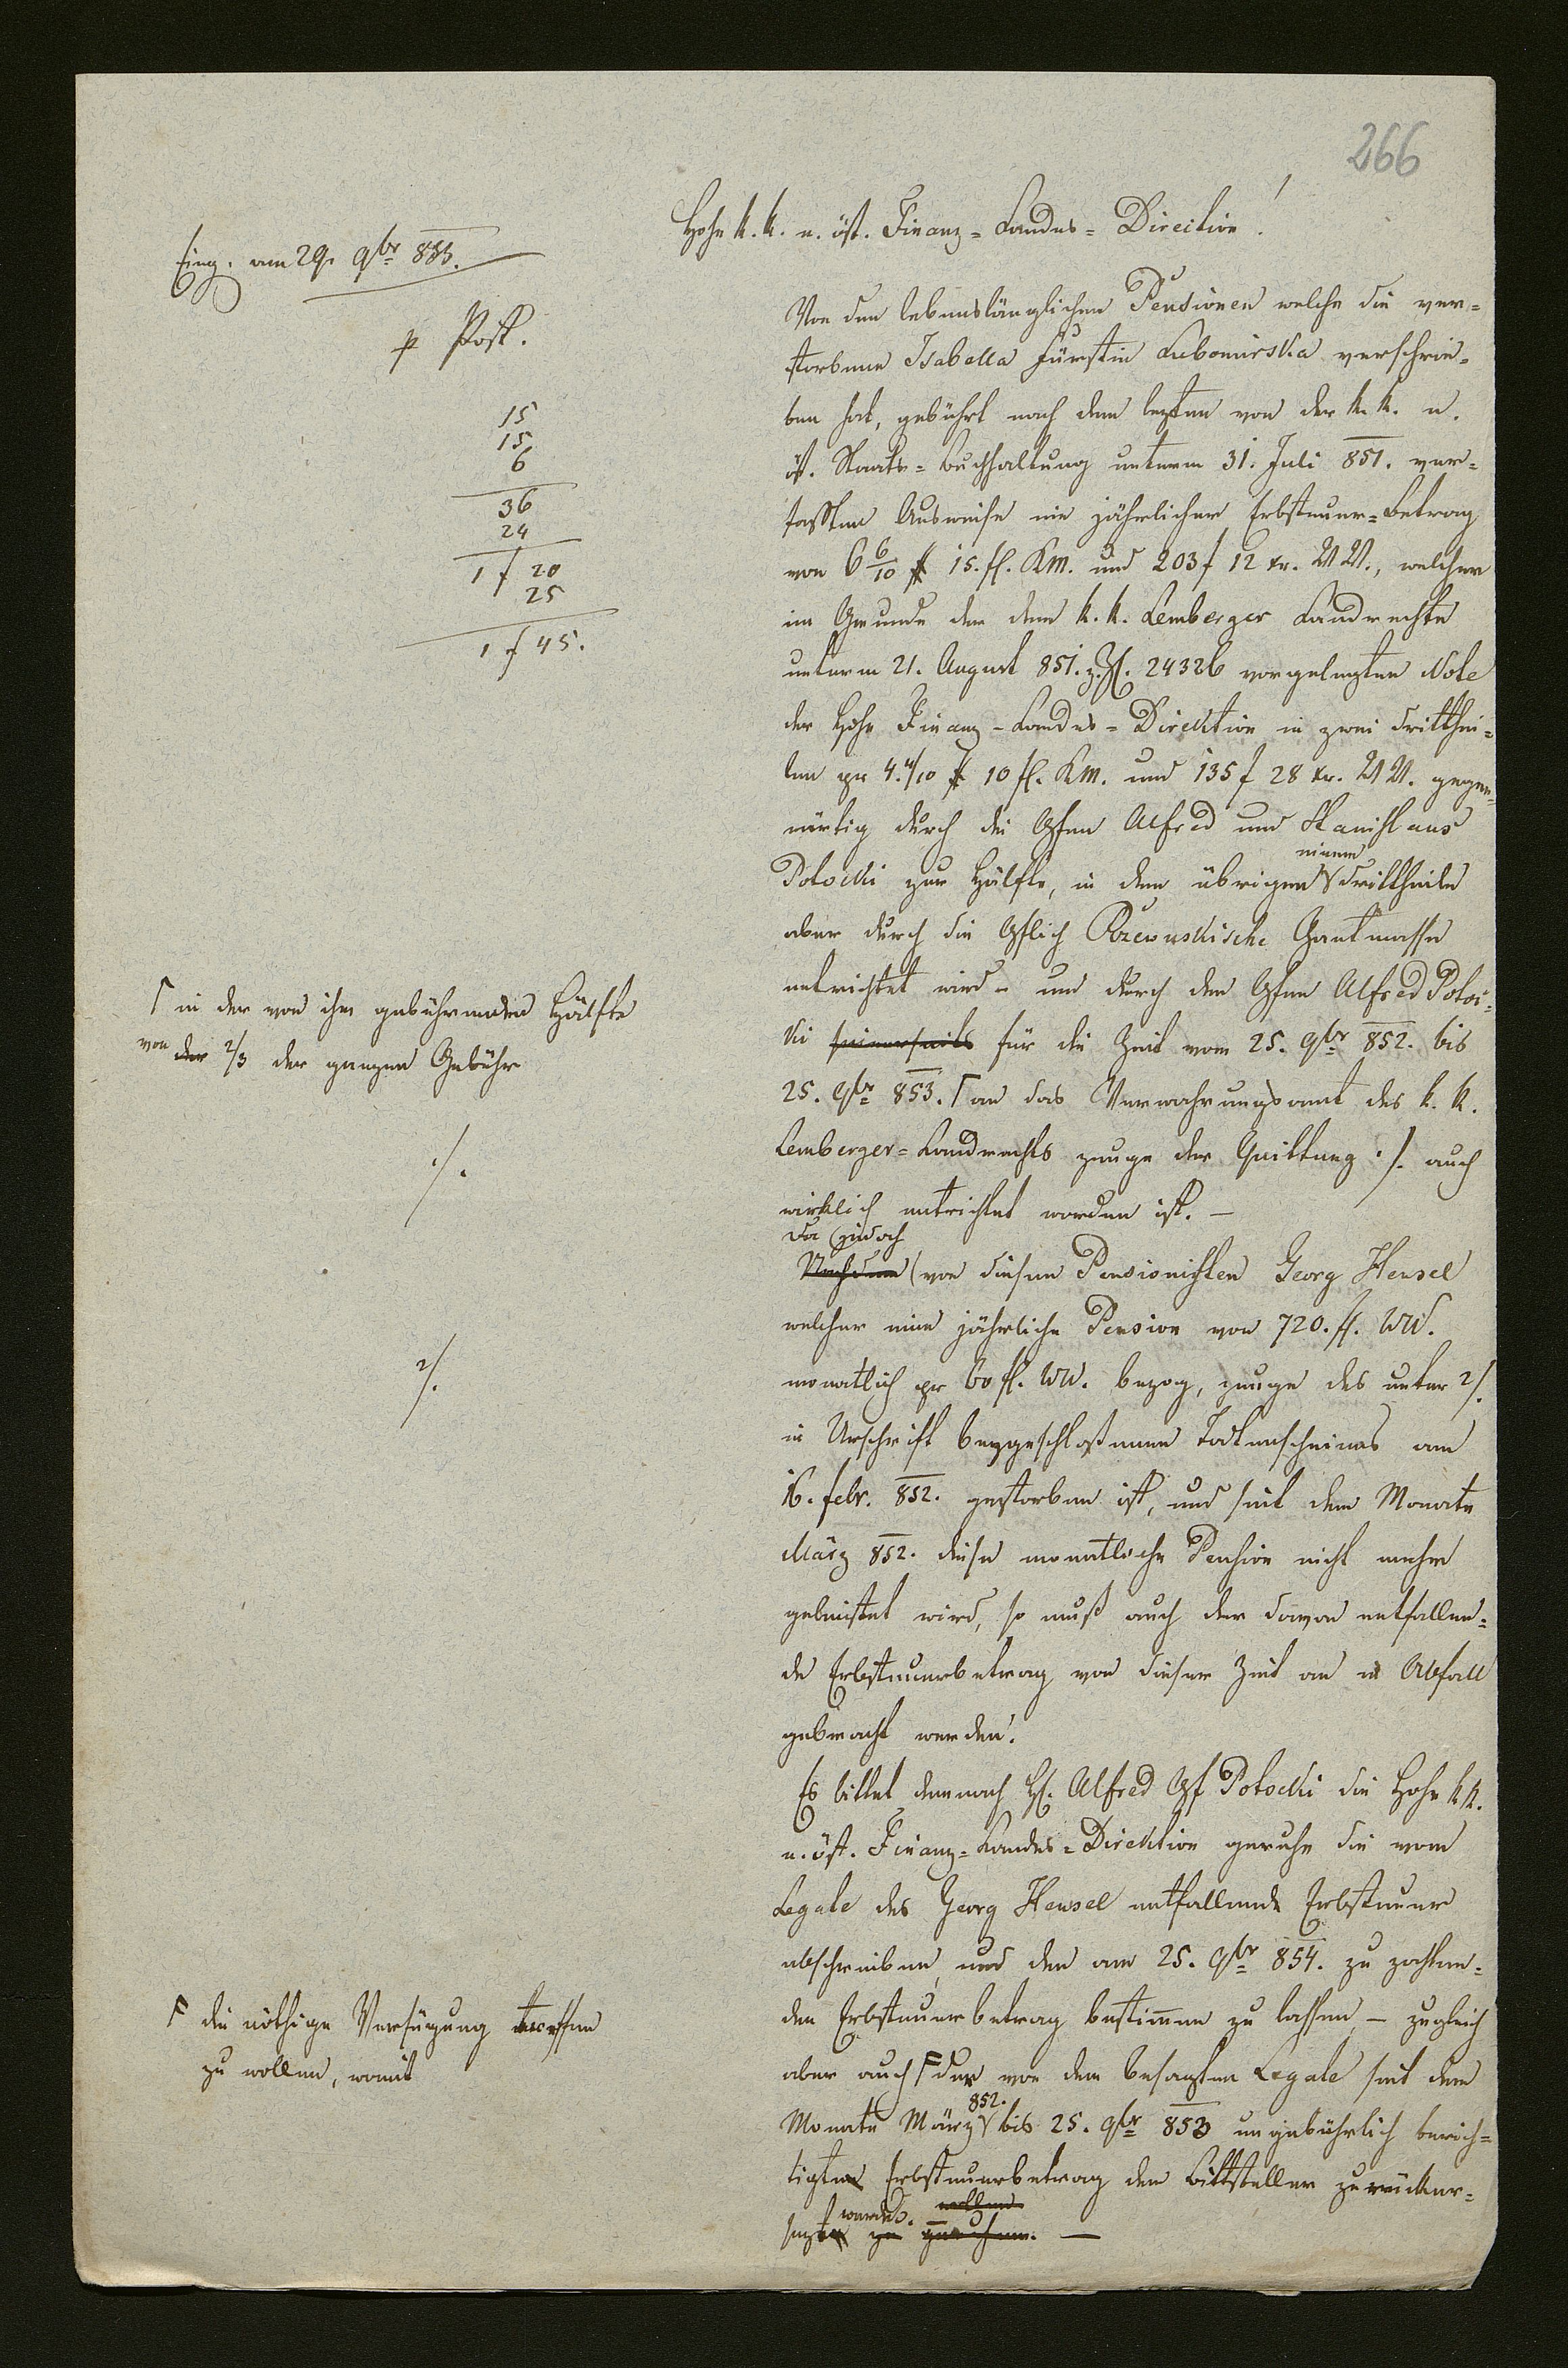 266
Hohe k. k. n. öst. Finanz-Landes-Direction!
Eing. am 29. 9br 853.
p Post.
15
15
6
36
24
1 f 20
25
1 f 45.
Von den lebenslänglichen Pensionen welche die ver-
storbene Isabella Fürstin Lubomirska verschrie-
ben hat, gebührt nach dem lezten von der k. k. n.
öst. Staats-Buchhaltung unterm 31. Juli 851. ver-
faßten Ausweise ein jährlicher Erbsteuer-Betrag
von 6 6/10 # 15. fl. KM. und 203 f 12 xr. WW., welcher
im Grunde der dem k. k. Lemberger Landrechte
unterm 21. August 851. z. Zl. 24326 vorgelegten Note
der Hohe Finanz-Landes-Direktion in zwei Dritthei-
len pr 4. 4/10 # 10 fl. KM. und 135 f 28 xr. WW. gegen-
wärtig durch die Gfen Alfred und Stanislaus
Potocki zur Hälfte, in dem übrigen einem Drittheile
aber durch die Gflich Rzewuskische Gantmasse
entrichtet wird – und durch den Gfen Alfred Potoc-
ki seinerseits für die Zeit vom 25. 9br 852. bis
25. 9br 853. Γ an das Verwahrungsamt des k. k.
Γ in der von ihm gebührenden Hälfte
von der 2/3 der ganzen Gebühr
Lemberger-Landrechts zeuge der Quittung 1/. auch
1/.
wirklich entrichtet worden ist. –
Da jedoch
Nachdem von diesen Pensionisten Georg Hensel
welcher eine jährliche Pension von 720. fl. WW.
monatlich pr 60 fl. WW. bezog, zeuge des unter 2/.
2/.
in Urschrift beygeschloßenen Todtenscheines am
16. febr. 852. gestorben ist, und seit dem Monate
März 852. diese monatliche Pension nicht mehr
geleistet wird, so muß auch der davon entfallen-
de Erbsteuerbetrag von dieser Zeit an in Abfall
gebracht werden.
Es bittet demnach H. Alfred Gf Potocki die Hohe k k.
n. öst. Finanz-Landes-Direktion geruhe die vom
Legate des Georg Hensel entfallende Erbsteuer
abschreiben, und den am 25. 9br 854. zu zahlen-
den Erbsteuerbetrag bestimmen zu lassen, – zugleich
aber auch F der von dem besagten Legate seit dem
F die nöthige Verfügung treffen
zu wollen, womit
Monate März 852. bis 25. 9br 853 ungebührlich berich-
tigte Erbsteuerbetrag dem Bittsteller zurücker-
sezt werde. wollen
zu geruhen. –